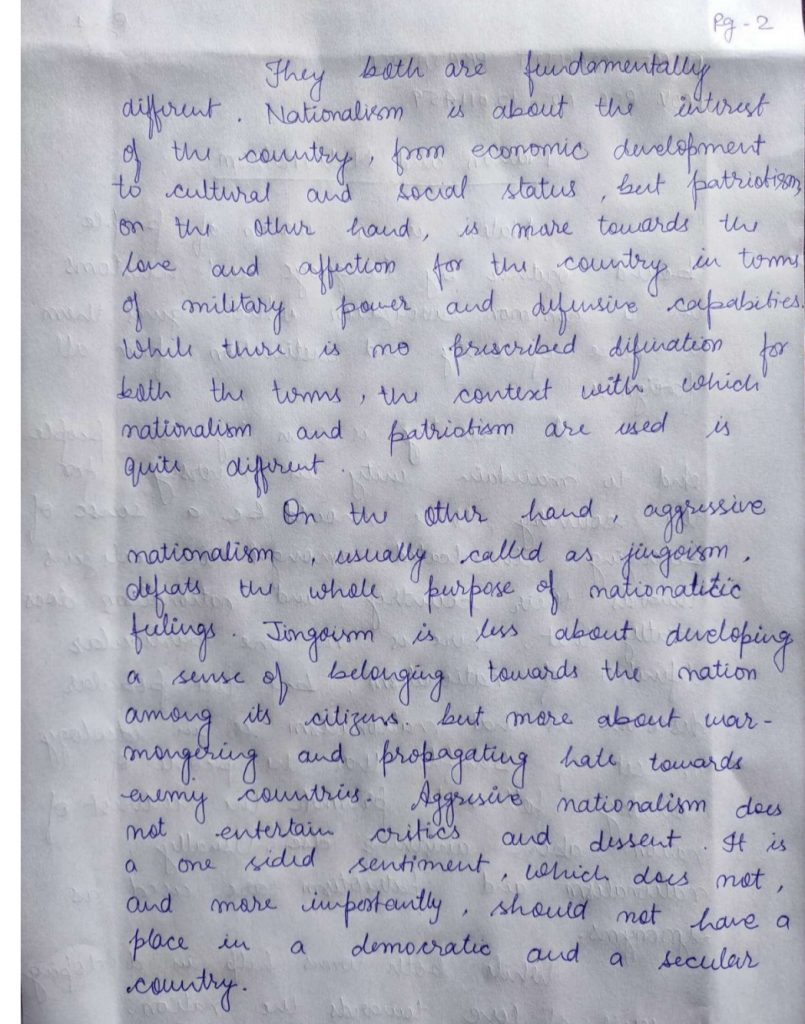 Pg - 2
They both are fundamentally
different. Nationalism is about the interest
of the country, from economic development
to cultural and social status, but patriotism,
on the other hand, is more towards the
love and affection for the country in terms
of military power and defensive capabities.
While there is no prescribed difination for
both the terms, the context with which
nationalism and patriotism are used is
quite different.
On the other hand, aggressive
nationalism, usually called as jingoism,
defeats the whole purpose of nationalitic
feelings. Jingoism is less about developing
a sense of belonging towards the nation
among its citizens. but more about war-
mongering and propagating hate towards
enemy countries. Aggresive nationalism does
not entertain critics and dissent. It is
a one sided sentiment, which does not,
and more importantly, should not have a
place in a democratic and a secular
country.